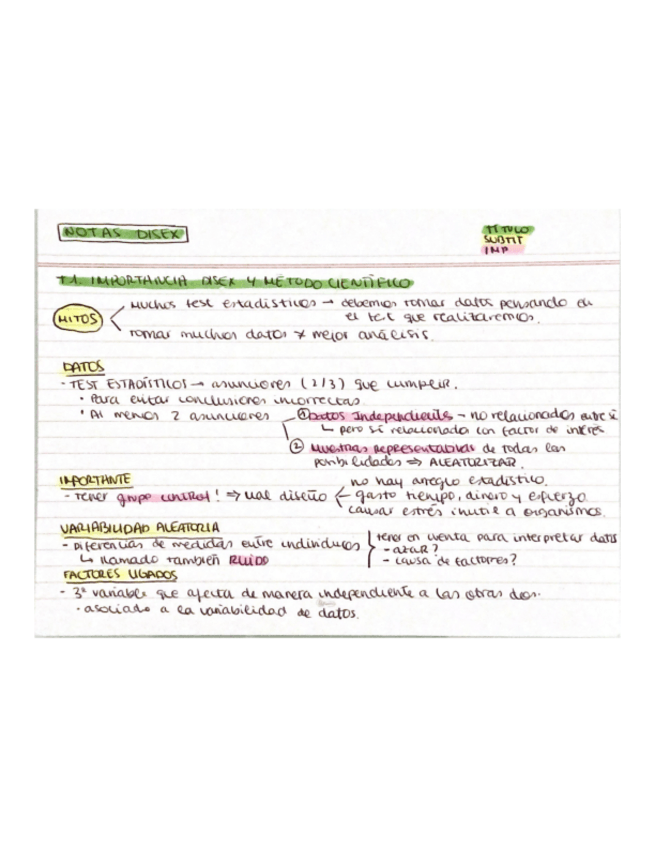 NOTAS DISEX
TÍTULO
SUBTIT
IMP
T1. IMPORTANCIA DISEX Y MÉTODO CIENTÍFICO
MITOS
Muchos test estadísticos → debemos tomar datos pensando en
el test que realizaremos.
tomar muchos datos ≠ mejor análisis.
DATOS
- TEST ESTADÍSTICOS → asunciones (2/3) que cumplir.
· Para evitar conclusiones incorrectas
· Al menos 2 asunciones
① Datos Independientes - no relacionados entre sí
↳ pero sí relacionados con factor de interés
② Muestras representables de todas las
posibilidades ⇒ ALEATORIZAR.
IMPORTANTE
- tener grupo control! ⇒ mal diseño
no hay arreglo estadístico.
gasto tiempo, dinero y esfuerzo
causar estrés inutil a organismos.
VARIABILIDAD ALEATORIA
- Diferencias de medidas entre individuos
↳ llamado también RUIDO
tener en cuenta para interpretar datos
- azar?
- causa de factores?
FACTORES LIGADOS
- 3ª variable que afecta de manera independiente a las otras dos.
· asociado a la variabilidad de datos.